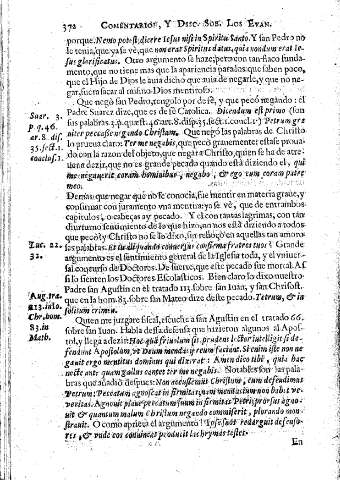 372 COMENTARIOS, Y DISC. SOB. LOS EVAN.
porque. Nemo potest dicere Iesus nisi in Spiritu Sancto. Y san Pedro no
le tenia, que ya se vè, que non erat Spiritus datus, quia nondum erat Ie-
sus glorificatus. Otro argumento se haze, pero con tan flaco funda-
mento, que no tiene mas que la apariencia para los que saben poco,
que el Hijo de Dios le auia dicho que auia de negarle, y que no ne-
gar, fuera sacar al mismo Dios mentiroso.
Que negò san Pedro, tengolo por de fè, y que pecò negando: el
Padre Suarez dize, que es de fè Catolica. Dicendum est primo (son
sus palabras)
Petrum gra
uiter peccasse negando Christum. Que negò las palabras de Christo
lo prueua claro: Ter me negabis, que pecò grauemente: està se proua-
do con la razon del objeto, que negar a Christo, quien se ha de atre-
uer dezir, que no es grande pecado quando està diziendo el, qui
me negauerit coram hominibus, negabo, & ego eum coram patre
meo.
Demas que negar que no le conocia, fue mentir en materia graue, y
confirmar con juramento vna mentira, ya se vè, que de entrambos
capitulos, o cabeças ay pecado. Y el con tantas lagrimas, con tan
diuturno sentimiento de lo que hizo, no nos està diziendo a todos
que pecò? y Christo no se lo dixo, sin reboço en aquellas tan amoro
sas palabras. Et tu aliquando conuersus confirma fratres tuos? Grande
argumento es el sentimiento general de la Iglesia toda, y el vniuer-
sal concurso de Doctores. De suerte, que este pecado fue mortal. Assi
lo sienten los Doctores Escolasticos. Bien claro lo dixo nuestro
Padre san Agustin en el tratado 113. sobre san Iuan, y san Chrisost.
que en la hom. 83. sobre san Mateo dize deste pecado. Tetrum, & in
solitum crimen.
Quien me juzgare fiscal, escuche a san Agustin en el tratado 66.
sobre san Iuan. Habla dessa defensa que hizieron algunos al Apos-
tol, y llega a dezir. Hoc quàm friuolum sit, prudens lector intelligit si de-
fendunt Apostolum, vt Deum mendacij reum faciant. Si enim iste non ne-
gauit ergo mentitus dominus qui dixerat: Amen dico tibi, quia hac
nocte ante quam gallus cantet ter me negabis. Notables son las pala-
bras que añadiò despues: Non accusemus Christum, cum defendimus
Petrum: Peccatum agnoscat infirmitas, nam mendacium non habet ve-
ritas. Agnouit plane peccatum suum infirmitas Petri, prorsus agno-
uit & quantum malum Christum negando commiserit, plorando mon-
strauit. O como aprieta el argumento! Ipse suos redarguit defenso-
res, & vnde eos conuincat producit lachrymas testes.
En
Suar. 3.
p. q. 46.
ar. 8. dis.
35. sect. 1.
conclus. 1.
Luc. 22.
32.
Aug. tra.
113. in Io.
Chr. hom.
83. in
Math.